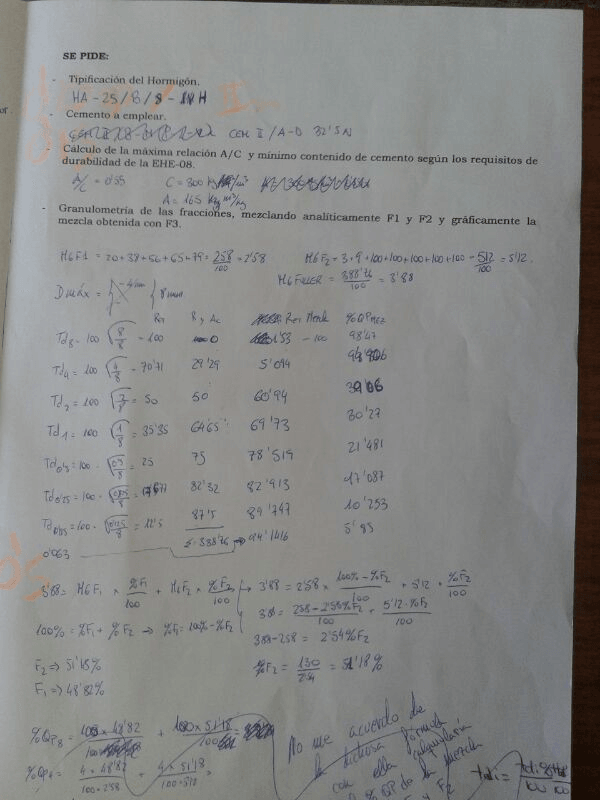 SE PIDE:
- Tipificación del Hormigón.
HA - 25 / B / 8 - H
- Cemento a emplear.
CEM II / A-D 32'5 N
- Cálculo de la máxima relación A/C y mínimo contenido de cemento según los requisitos de
durabilidad de la EHE-08.
A/C = 0'55 C = 300 kg/m³
A = 165
- Granulometría de las fracciones, mezclando analíticamente F1 y F2 y gráficamente la
mezcla obtenida con F3.
MG F1 = 20+38+56+65+79 = 258/100 = 2'58 MG F2 = 3+9+100+100+100+100+100 = 512/100 = 5'12.
MG FULLER = 388'76/100 = 3'88
Dmáx = 8 mm
Ret Mezcla %QP MEZ
Td8 = 100 √8/8 = 100 0 1'53 - 100 98'47
Td4 = 100 √4/8 = 70'71 29'29 5'094
Td2 = 100 √2/8 = 50 50 60'94
Td1 = 100 √1/8 = 35'35 64'65 69'73 30'27
Td0'5 = 100 · √0'5/8 = 25 75 78'519 21'481
Td0'25 = 100 · √0'25/8 = 82'32 82'913 17'087
Td0'125 = 100 · √0'125/8 = 12'5 87'5 89'747 10'253
0'063 Σ = 388'76 94'1416 5'85
3'88 = MG F1 × %F1/100 + MG F2 × %F2/100 → 3'88 = 2'58 × 100% - %F2/100 + 5'12 · %F2/100
100% = %F1 + %F2 → %F1 = 100% - %F2
258 - 2'58%F2/100 + 5'12·%F2/100
388 - 258 = 2'54%F2
F2 ⇒ 51'18%
%F2 = 130/2'54 = 51'18 %
F1 ⇒ 48'82%
%QP8 = 100 × 48'82/100 + 100 × 51'18/100 =
%QP4 = 4 × 48'82/100 · 2'58 + 4 × 51'18/100 · 5'12 =
No me acuerdo de
la dichosa fórmula
con ella calcularía
% QP de la mezcla
F2